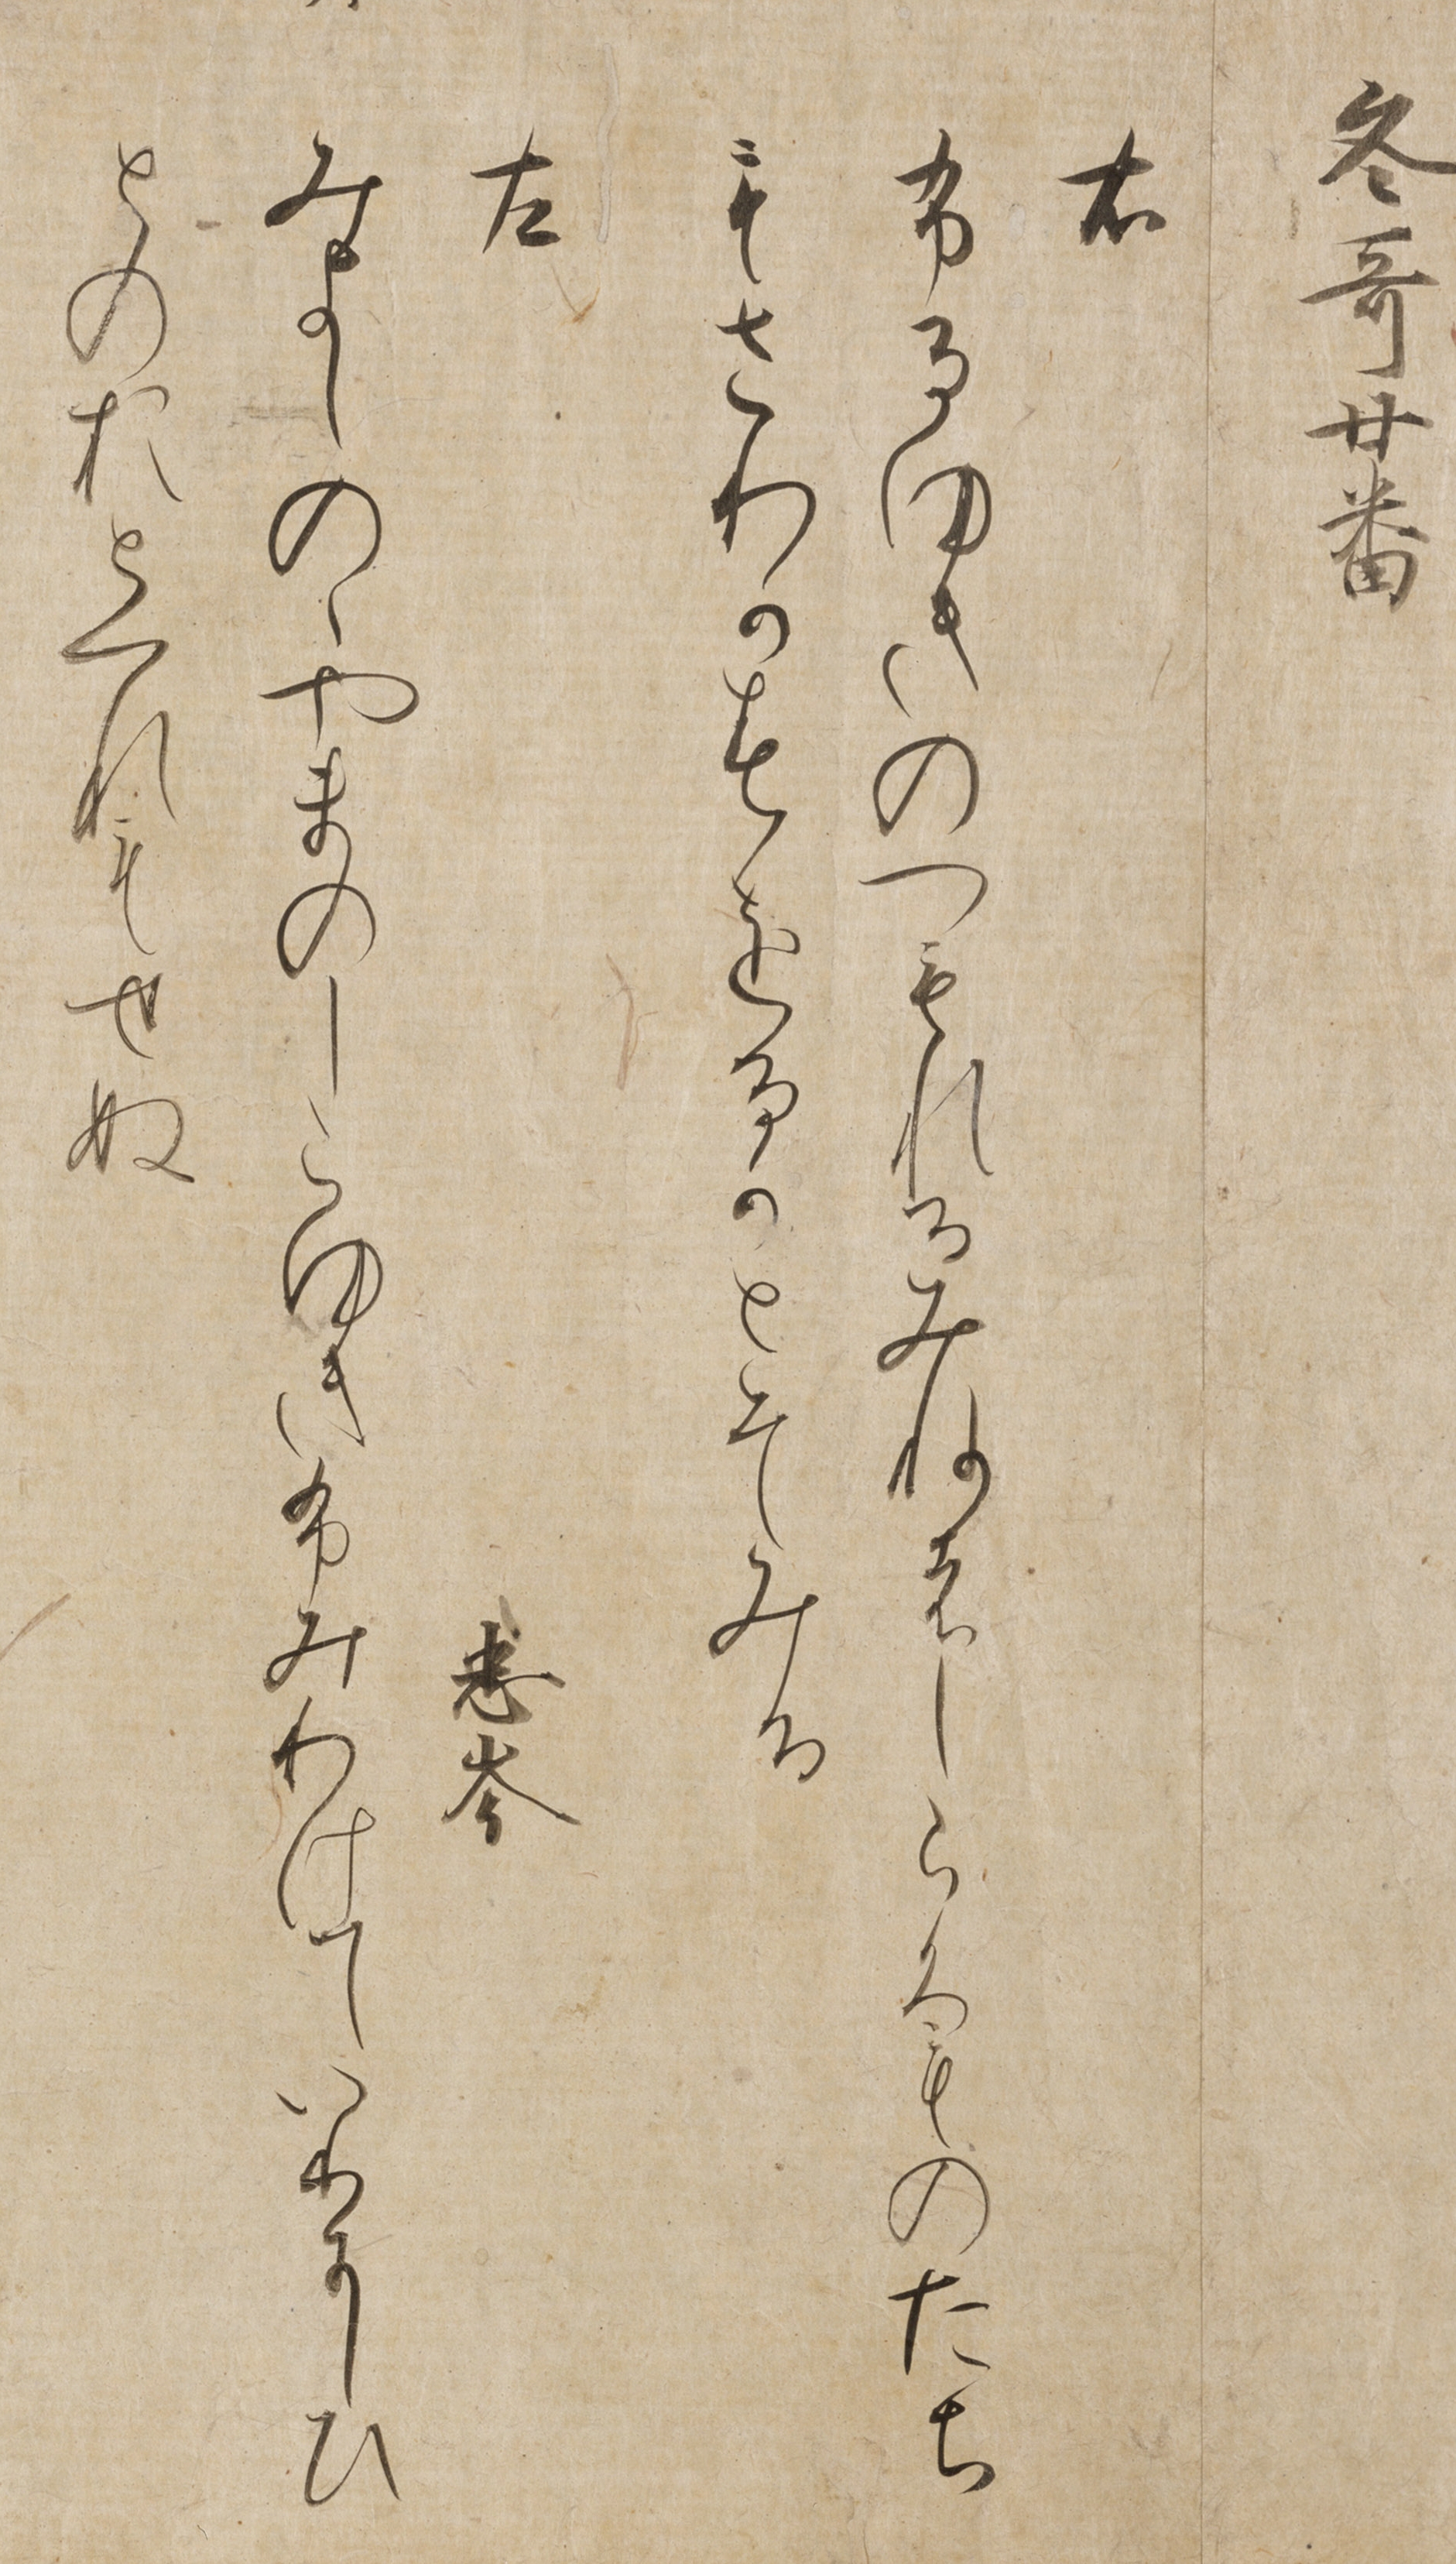 冬哥廿番
右
布るゆきのつもれるみねはしらくものたち
もさわかすをるかとそみる
左
忠岑
みよしのゝやまのしらゆきふみわけていりにしひ
とのおとつれもせぬ